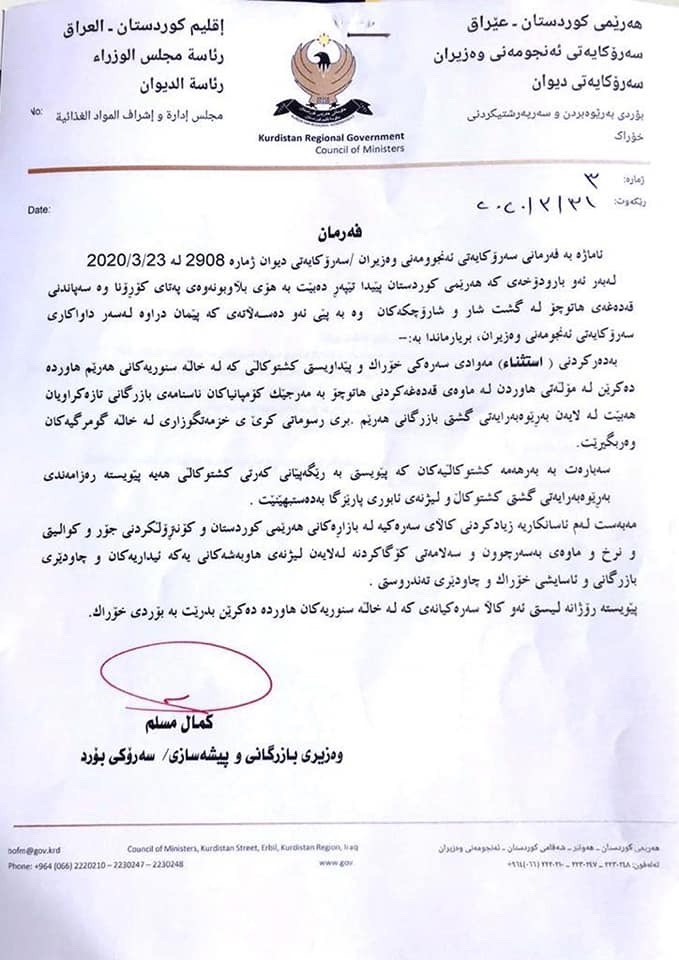 هەرێمی کوردستان ـ عێراق
سەرۆکایەتی ئەنجومەنی وەزیران
سەرۆکایەتی دیوان
بۆردی بەرێوەبردن و سەرپەرشتیکردنی
خۆراک
إقليم كوردستان ـ العراق
رئاسة مجلس الوزراء
رئاسة الديوان
مجلس إدارة و إشراف المواد الغذائية
No:
Kurdistan Regional Government
Council of Ministers
ژمارە: ٣
رێکەوت: ٢٠٢٠/٣/٣١
Date:
فەرمان
ئاماژە بە فەرمانی سەرۆکایەتی ئەنجوومەنی وەزیران /سەرۆکایەتی دیوان ژمارە 2908 لە 2020/3/23
لەبەر ئەو بارودۆخەی کە هەرێمی کوردستان پێیدا تێپەر دەبێت بە هۆی بڵاوبونەوەی پەتای کۆرۆنا وە سەپاندنی
قەدەغەی هاتوچۆ لە گشت شار و شارۆچکەکان وە بە پێی ئەو دەسەڵاتەی کە پێمان دراوە لەسەر داواکاری
سەرۆکایەتی ئەنجومەنی وەزیران، بریارماندا بە:-
بەدەرکردنی ( استثناء) مەوادی سەرەکی خۆراک و پێداویستی کشتوکاڵی کە لە خاڵە سنوریەکانی هەرێم هاوردە
دەکرێن لە مۆڵەتی هاوردن لە ماوەی قەدەغەکردنی هاتوچۆ بە مەرجێک کۆمپانیاکان ناسنامەی بازرگانی تازەکراویان
هەبێت لە لایەن بەرێوەبەرایەتی گشتی بازرگانی هەرێم .بری رسوماتی کرێ ی خزمەتگوزاری لە خاڵە گومرگیەکان
وەربگیرێت.
سەبارەت بە بەرهەمە کشتوکاڵیەکان کە پێویستی بە رێگەپێانی کەرتی کشتوکاڵی هەیە پێویستە رەزامەندی
بەرێوەبەرایەتی گشتی کشتوکاڵ و لیژنەی ئابوری پارێزگا بەدەستبهێنێت .
مەبەست لەم ئاسانکاریە زیادکردنی کاڵای سەرەکیە لە بازارەکانی هەرێمی کوردستان و کۆنترۆڵکردنی جۆر و کوالیتی
و نرخ و ماوەی بەسەرچوون و سەلامەتی کۆگاکردنە لەلایەن لیژنەی هاوبەشەکانی یەکە ئیداریەکان و چاودێری
بازرگانی و ئاسایشی خۆراک و چاودێری تەندروستی .
پێویستە رۆژانە لیستی ئەو کاڵا سەرەکیانەی کە لە خاڵە سنوریەکان هاوردە دەکرێن بدرێت بە بۆردی خۆراک.
کمال مسلم
وەزیری بازرگانی و پیشەسازی/ سەرۆکی بۆرد
هەرێمی کوردستان ـ هەولێر ـ شەقامی کوردستان ـ ئەنجومەنی وەزیران
تەلەفون: ٢٢٣٠٢٤٨ ـ ٢٢٣٠٢٤٧ ـ ٢٢٢٠٢١٠ (٠٦٦) ٩٦٤+
Council of Ministers, Kurdistan Street, Erbil, Kurdistan Region, Iraq
www.gov.
bofm@gov.krd
Phone: +964 (066) 2220210 – 2230247 – 2230248